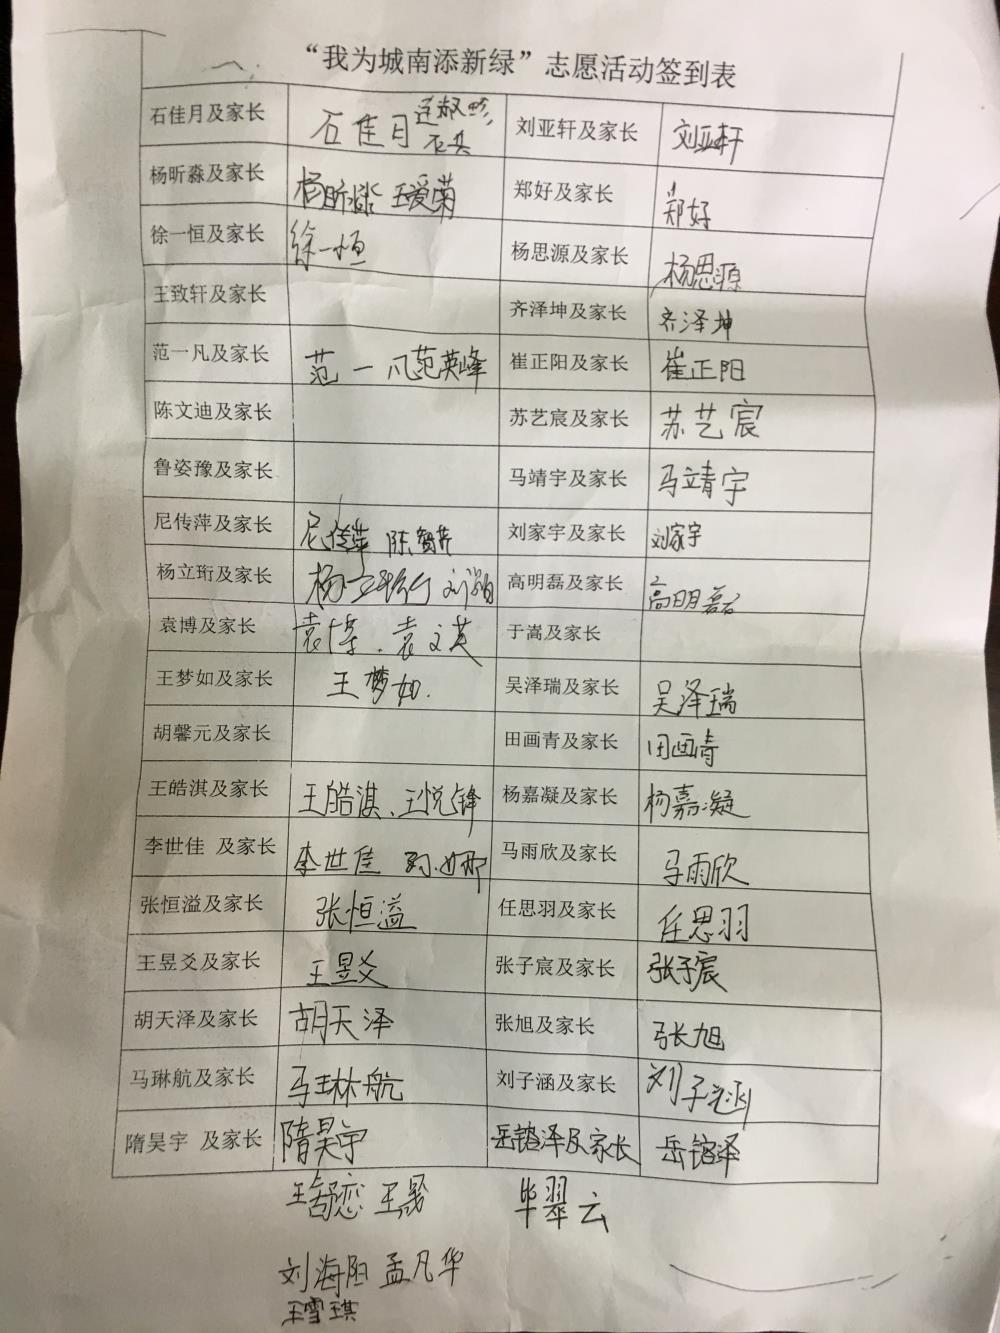 “我为城南添新绿”志愿活动签到表
石佳月及家长 石佳月 刘亚轩及家长 刘亚轩
杨昕淼及家长 杨昕淼 王爱菊 郑好及家长 郑好
徐一恒及家长 徐一恒 杨思源及家长 杨思源
王致轩及家长 齐泽坤及家长 齐泽坤
范一凡及家长 范一凡范英峰 崔正阳及家长 崔正阳
陈文迪及家长 苏艺宸及家长 苏艺宸
鲁姿豫及家长 马靖宇及家长 马靖宇
尼传萍及家长 尼传萍 刘家宇及家长 刘家宇
杨立珩及家长 杨立珩 高明磊及家长 高明磊
袁博及家长 袁博、袁文英 于嵩及家长
王梦如及家长 王梦如. 吴泽瑞及家长 吴泽瑞
胡馨元及家长 田画青及家长 田画青
王皓淇及家长 王皓淇、王悦锋 杨嘉凝及家长 杨嘉凝
李世佳 及家长 李世佳 马雨欣及家长 马雨欣
张恒溢及家长 张恒溢 任思羽及家长 任思羽
王昱爻及家长 王昱爻 张子宸及家长 张子宸
胡天泽及家长 胡天泽 张旭及家长 张旭
马琳航及家长 马琳航 刘子涵及家长 刘子涵
隋昊宇 及家长 隋昊宇 岳镕泽及家长 岳镕泽
毕翠云
刘海阳 孟凡华
王雪琪